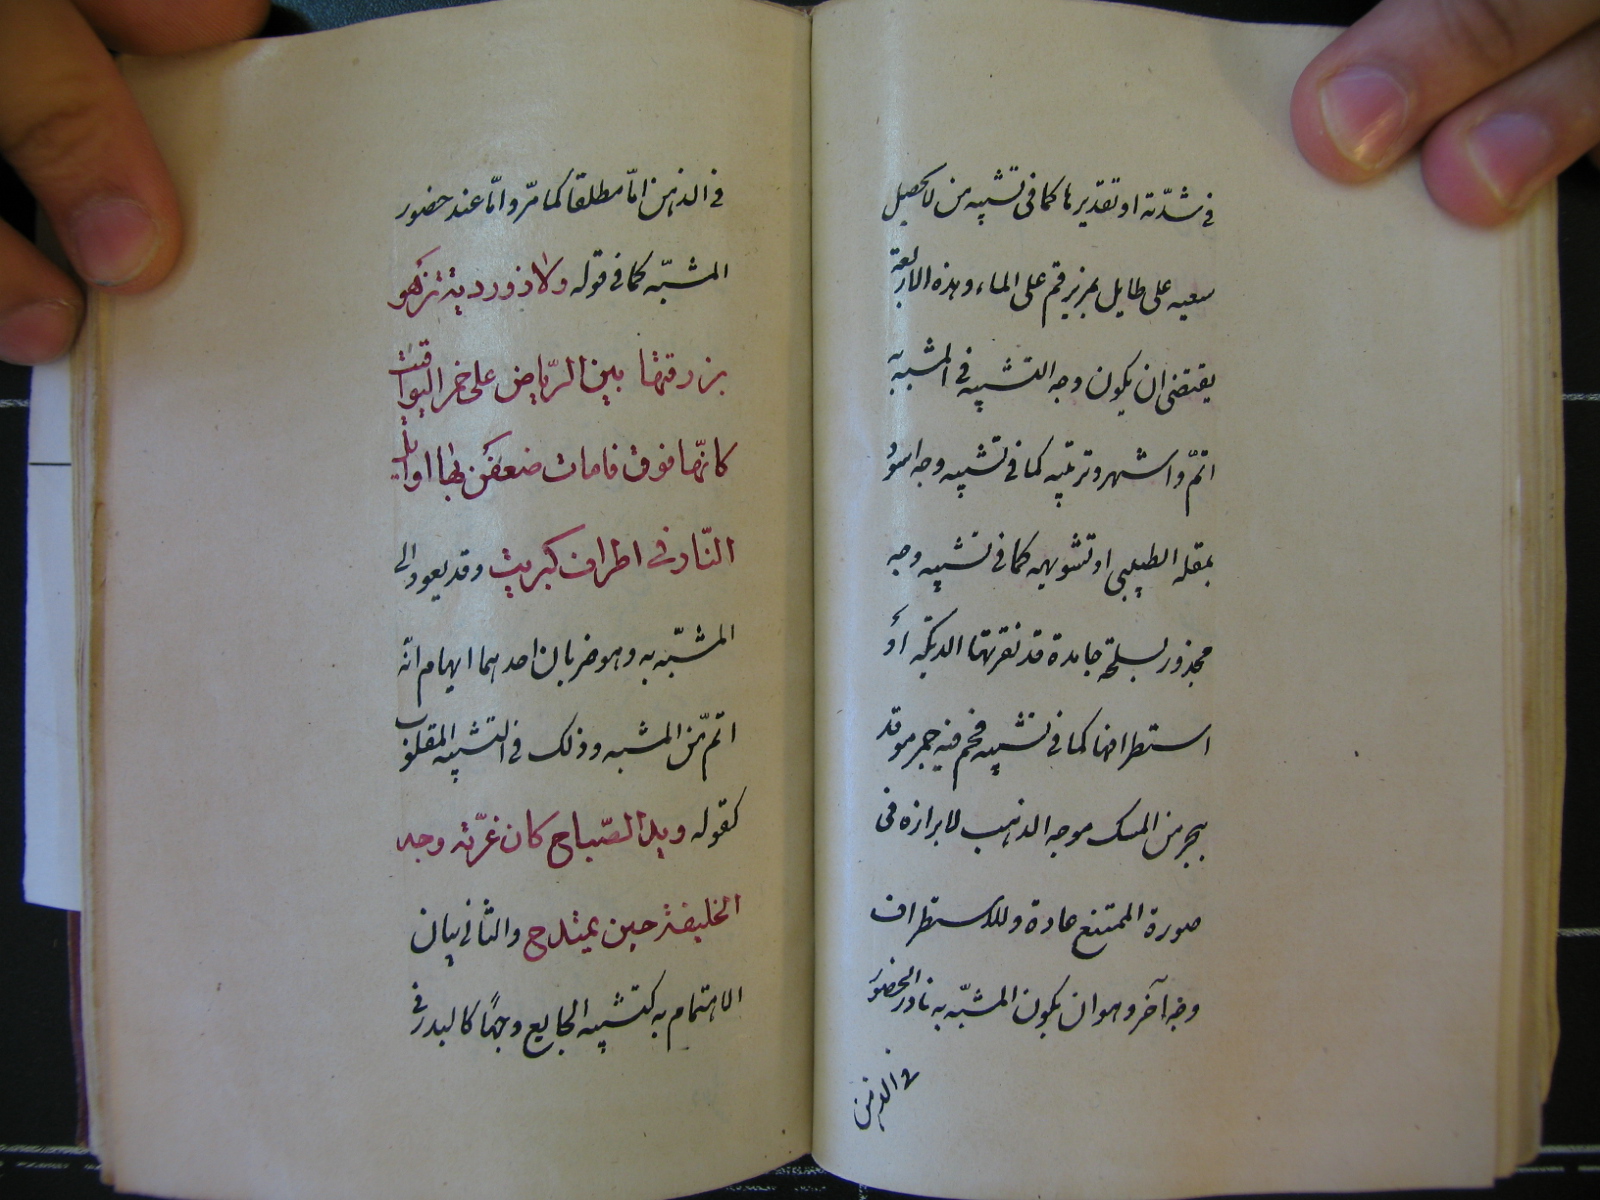 في شدّته او تقديرها كما في تشبيه من لا يحصل
سعيه على طايل بمن يرقم على الماء وهذه الاربعة
يقتضى ان يكون وجه التشبيه في المشبه به
اتمّ واشهر وتزيينه كما في تشبيه وجه اسود
بمقلة الظبي او تشويهه كما في تشبيه وجه
مجذور بسلحة جامدة قد نقرتها الديكة أو
استطرافها كما في تشبيه فحم فيه جمر موقد
ببحر من المسك موجه الذهب لابرازه في
صورة الممتنع عادة وللاستطراف
وجه آخر وهو ان يكون المشبّه به نادر الحضور
في الذهن
في الذهن امّا مطلقا كما مرّ وامّا عند حضور
المشبّه كما في قوله ولازوردية تزهو
بزرقتها بين الرّياض على حمر اليواقيت
كانّها فوق قامات ضعفن بها اوائل
النّار في اطراف كبريت وقد يعود الى
المشبّه به وهو ضربان احدهما ايهام انّه
اتمّ من المشبه وذلك في التشبيه المقلوب
كقوله وبدا الصّباح كان غرّته وجه
الخليفة حين يمتدح والثاني بيان
الاهتمام به كتشبيه الجايع وجهًا كالبدر في